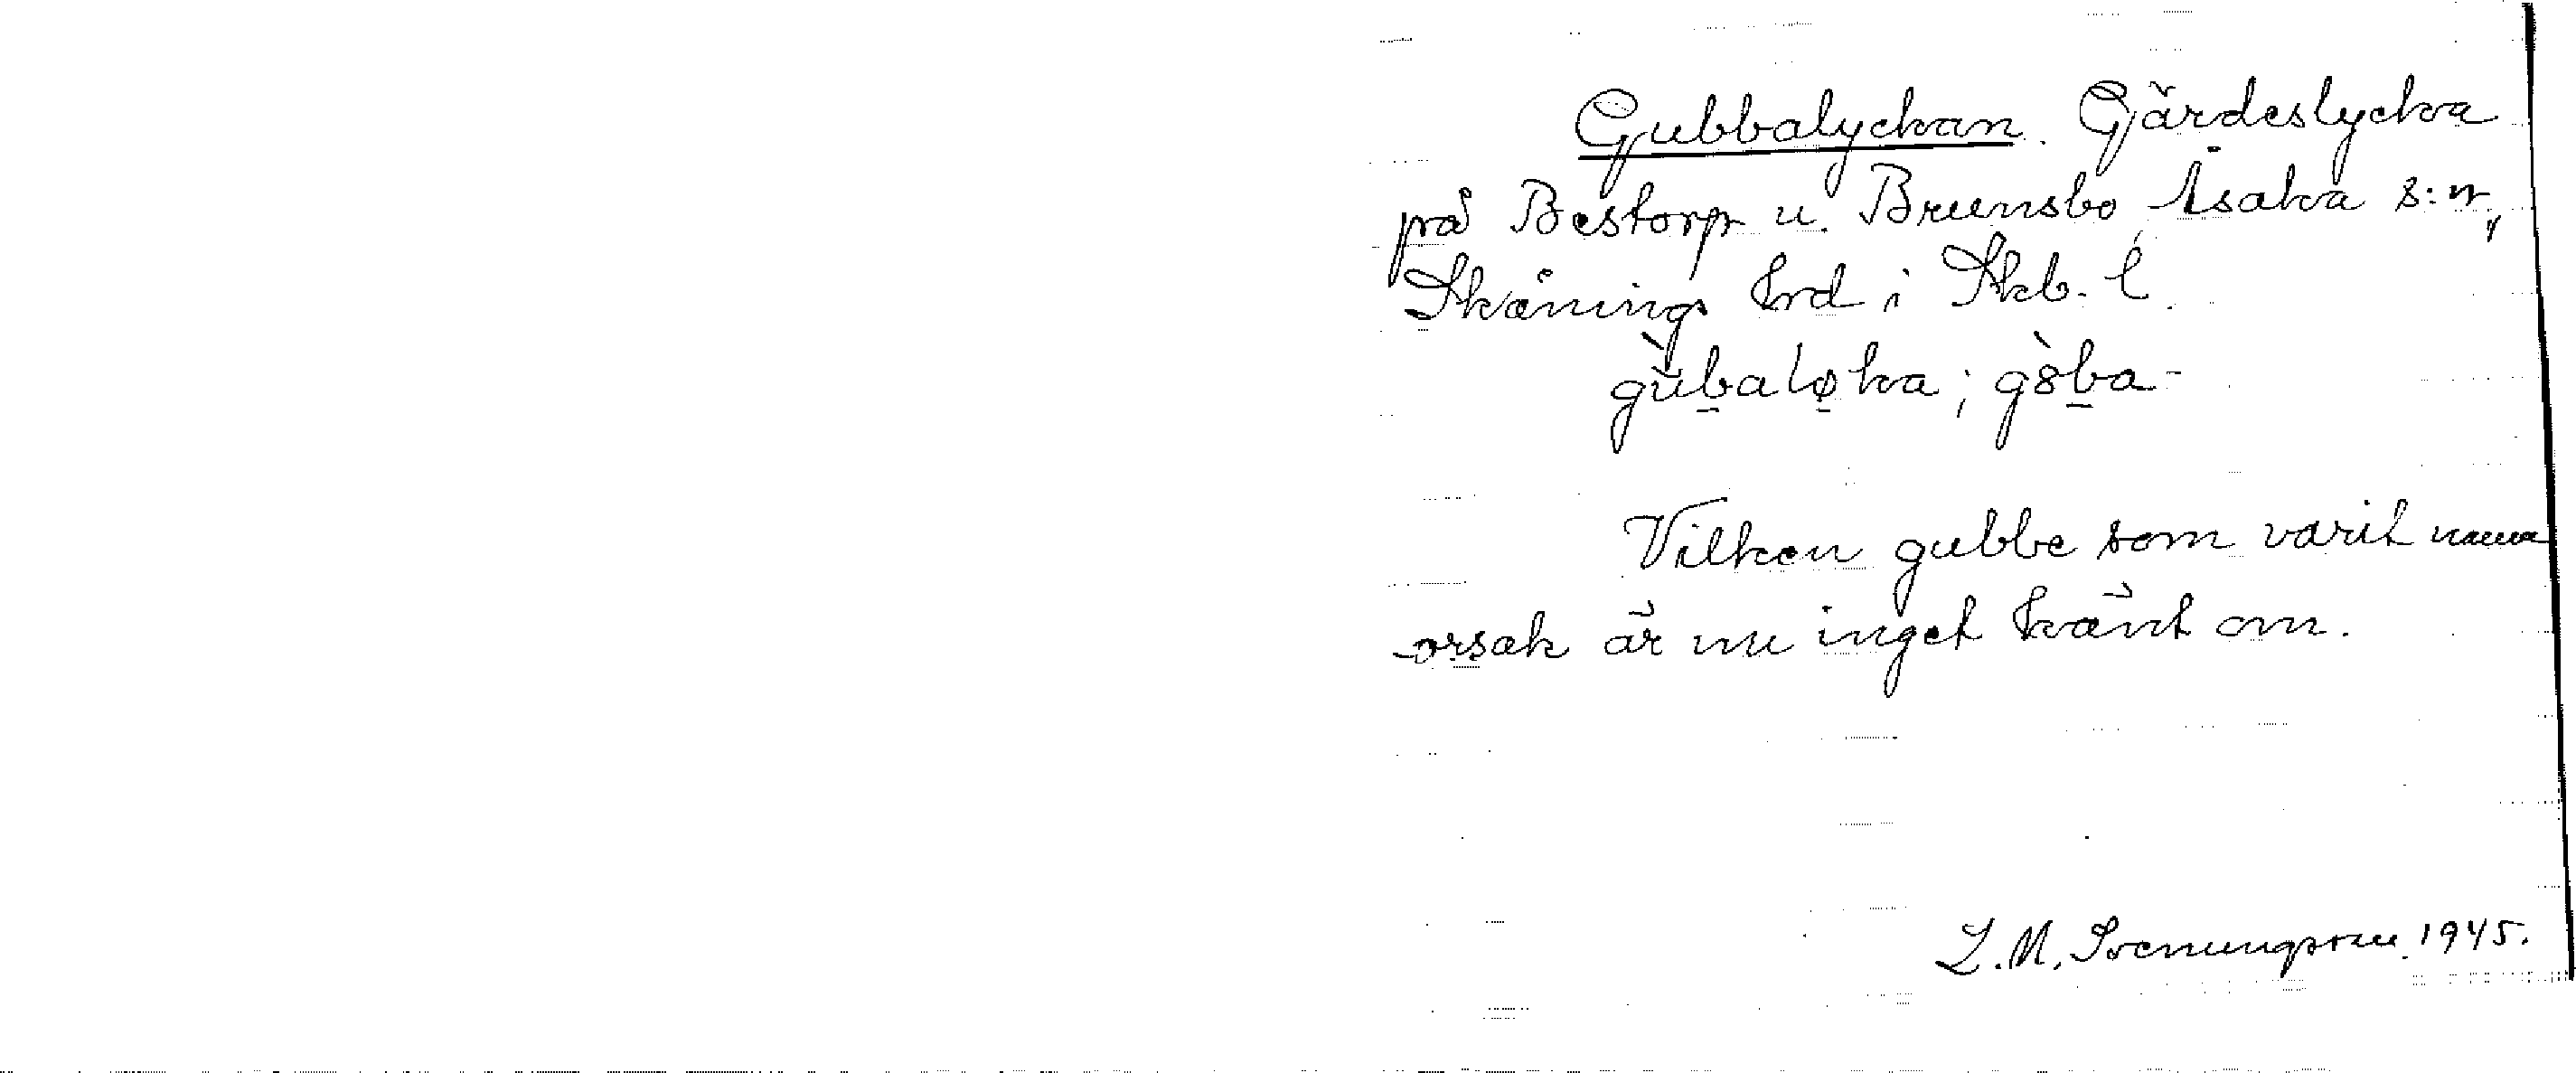 Gubbalyckan. Gärdeslycka
på Bestorp u. Brunsbo, Åsaka s:n,
Skånings hrd i Skb. l.
gùbaløka; gòba-
Vilken gubbe som varit namn
orsak är nu inget känt om.
L. M. Svenungsson 1945.